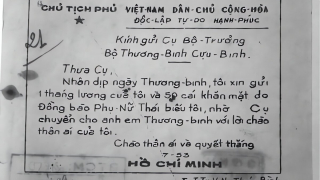 CHỦ TỊCH PHỦ VIỆT-NAM DÂN-CHỦ CỘNG-HÒA
ĐỘC-LẬP TỰ-DO HẠNH-PHÚC
Kính gửi Cụ Bộ-Trưởng
Bộ Thương-Binh Cựu-Binh.
Thưa Cụ,
Nhân dịp ngày Thương-binh, tôi xin gửi
1 tháng lương của tôi và 50 cái khăn mặt do
Đồng bào Phụ-Nữ Thái biếu tôi, nhờ Cụ
chuyển cho anh em Thương-binh với lời chào
thân ái của tôi.
Chào thân ái và quyết thắng
7-53
HỒ CHÍ MINH